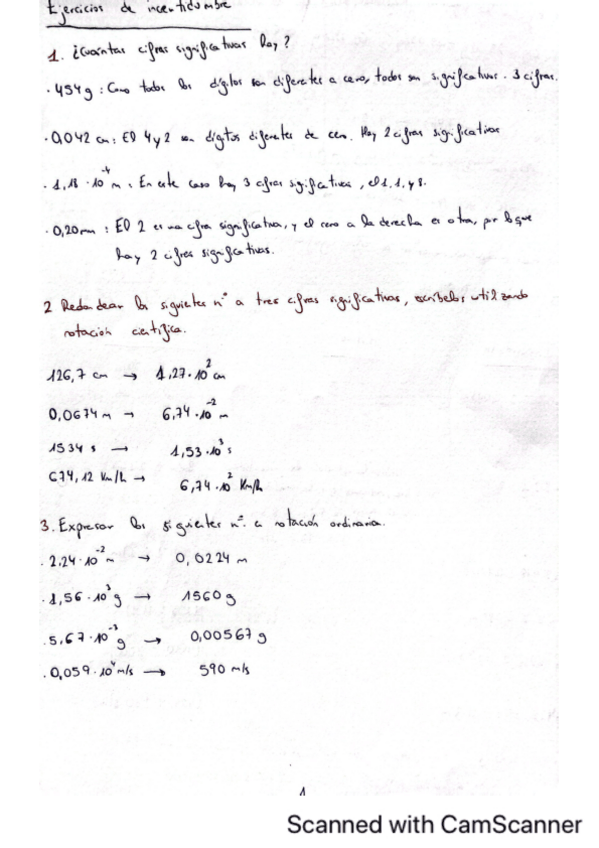 Ejercicios de incertidumbre
1. ¿Cuántas cifras significativas hay?
· 454 g : Como todos los dígitos son diferentes a cero, todos son significativos. 3 cifras.
· 0,042 cm : El 4 y 2 son dígitos diferentes de cero. Hay 2 cifras significativas
· 1,18 · 10⁻⁴ m : En este caso hay 3 cifras significativas, el 1, 1, y 8.
· 0,20 mm : El 2 es una cifra significativa, y el cero a la derecha es otra, por lo que
hay 2 cifras significativas.
2 Redondear los siguientes nº a tres cifras significativas, escríbelos utilizando
notación científica.
126,7 cm → 1,27·10² cm
0,0674 m → 6,74·10⁻² m
1534 s → 1,53·10³ s
674,12 Km/h → 6,74·10² Km/h
3. Expresar los siguientes nº a notación ordinaria.
· 2,24·10⁻² m → 0,0224 m
· 1,56·10³ g → 1560 g
· 5,67·10⁻³ g → 0,00567 g
· 0,059·10⁴ m/s → 590 m/s
1
Scanned with CamScanner